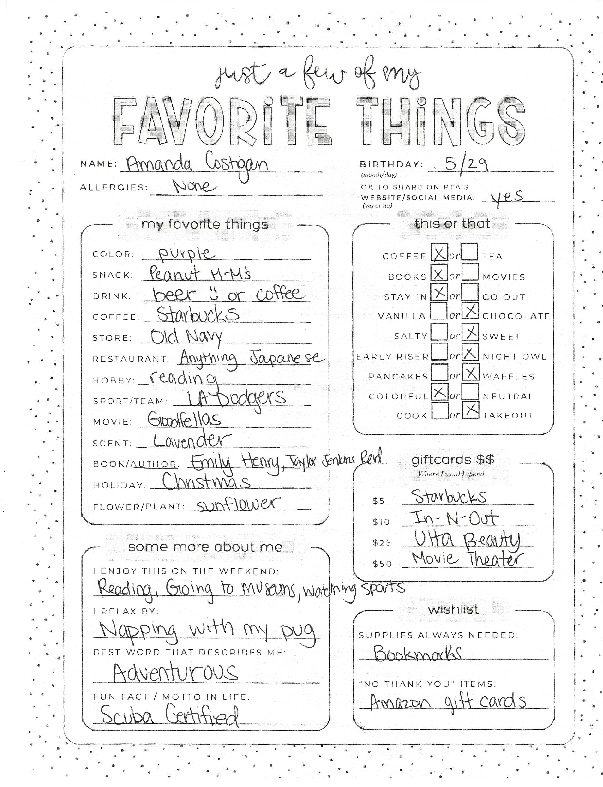 just a few of my
FAVORITE THINGS
NAME: Amanda Costigan
ALLERGIES: None
BIRTHDAY: 5/29
(month/day)
OK TO SHARE ON PTA'S
WEBSITE/SOCIAL MEDIA: yes
(yes or no)
my favorite things
COLOR: purple
SNACK: Peanut M-M's
DRINK: beer :) or coffee
COFFEE: Starbucks
STORE: Old Navy
RESTAURANT: Anything Japanese
HOBBY: reading
SPORT/TEAM: LA Dodgers
MOVIE: Goodfellas
SCENT: Lavender
BOOK/AUTHOR: Emily Henry, Taylor Jenkins Reid
HOLIDAY: Christmas
FLOWER/PLANT: sunflower
this or that
COFFEE X or TEA
BOOKS X or MOVIES
STAY IN X or GO OUT
VANILLA or X CHOCOLATE
SALTY or X SWEET
EARLY RISER or X NIGHT OWL
PANCAKES or X WAFFLES
COLORFUL X or NEUTRAL
COOK or X TAKEOUT
giftcards $$
$5 Starbucks
$10 In-N-Out
$25 Ulta Beauty
$50 Movie Theater
some more about me
I ENJOY THIS ON THE WEEKEND:
Reading, Going to museums, watching sports
I RELAX BY:
Napping with my pug
BEST WORD THAT DESCRIBES ME:
Adventurous
FUN FACT / MOTTO IN LIFE:
Scuba Certified
wishlist
SUPPLIES ALWAYS NEEDED:
Bookmarks
"NO THANK YOU" ITEMS:
Amazon gift cards